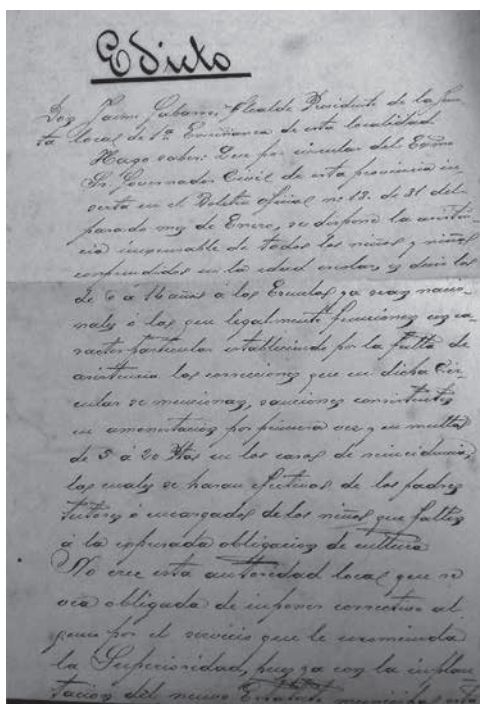 Edicto
Don Jaime Sabanes Alcalde Presidente de la Jun-
ta local de 1ª Enseñanza de esta localidad
Hago saber: Que por circular del Excmo
Sr. Governador Civil de esta provincia in-
serta en el Boletin oficial nº 13. de 31 del
pasado mes de Enero, se dispone la asisten-
cia inexcusable de todos los niños y niñas
comprendidos en la edad escolar, es decir los
de 6 a 14 años á las Escuelas ya sean nacio-
nales ó las que legalmente funcionen con ca-
racter particular estableciendo por la falta de
asistencia las correcciones que en dicha Cir-
cular se mencionan, sanciones consistentes
en amonestacion por primera vez y en multas
de 5 á 20 Ptas en los casos de reincidencia,
las cuales se haran efectivas de los padres
tutores ó encargados de los niños que falten
á la expresada obligacion de cultura
No cree esta autoridad local que se
vea obligada de imponer correctivo al
guno por el servicio que le encomienda
la Superioridad, pues ya con la implan
tacion del nuevo Estatuto municipal esta